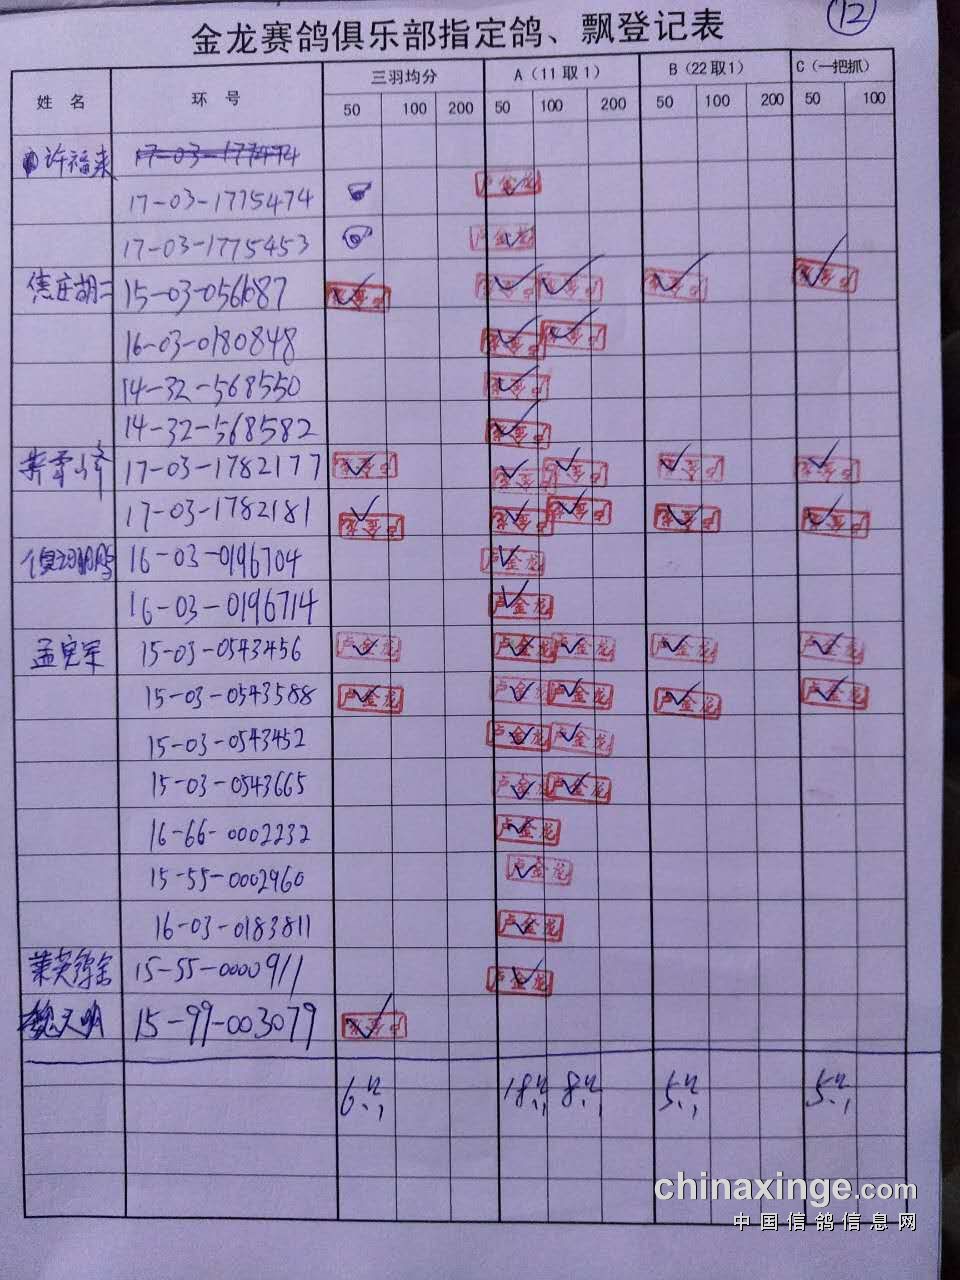 12
金龙赛鸽俱乐部指定鸽、飘登记表
姓 名 环 号 三羽均分 A（11取1） B（22取1） C（一把抓）
50 100 200 50 100 200 50 100 200 50 100
许福来 17-03-177494
17-03-1775474 卢金龙
17-03-1775453 卢金龙
焦庄胡二 15-03-056687 卢金龙 卢金龙 卢金龙 卢金龙 卢金龙
16-03-0180848 卢金龙 卢金龙
14-32-568550 卢金龙
14-32-568582 卢金龙
17-03-1782177 卢金龙 卢金龙 卢金龙 卢金龙 卢金龙
17-03-1782181 卢金龙 卢金龙 卢金龙 卢金龙 卢金龙
16-03-0196704 卢金龙
16-03-0196714 卢金龙
孟宪军 15-03-0543456 卢金龙 卢金龙 卢金龙 卢金龙 卢金龙
15-03-0543588 卢金龙 卢金龙 卢金龙 卢金龙 卢金龙
15-03-0543452 卢金龙 卢金龙
15-03-0543665 卢金龙 卢金龙
16-66-0002232 卢金龙
15-55-0002960 卢金龙
16-03-0183811 卢金龙
15-55-0000911 卢金龙
魏天明 15-99-003079 卢金龙
6 18 8 5 5
chinaxinge.com
中国信鸽信息网